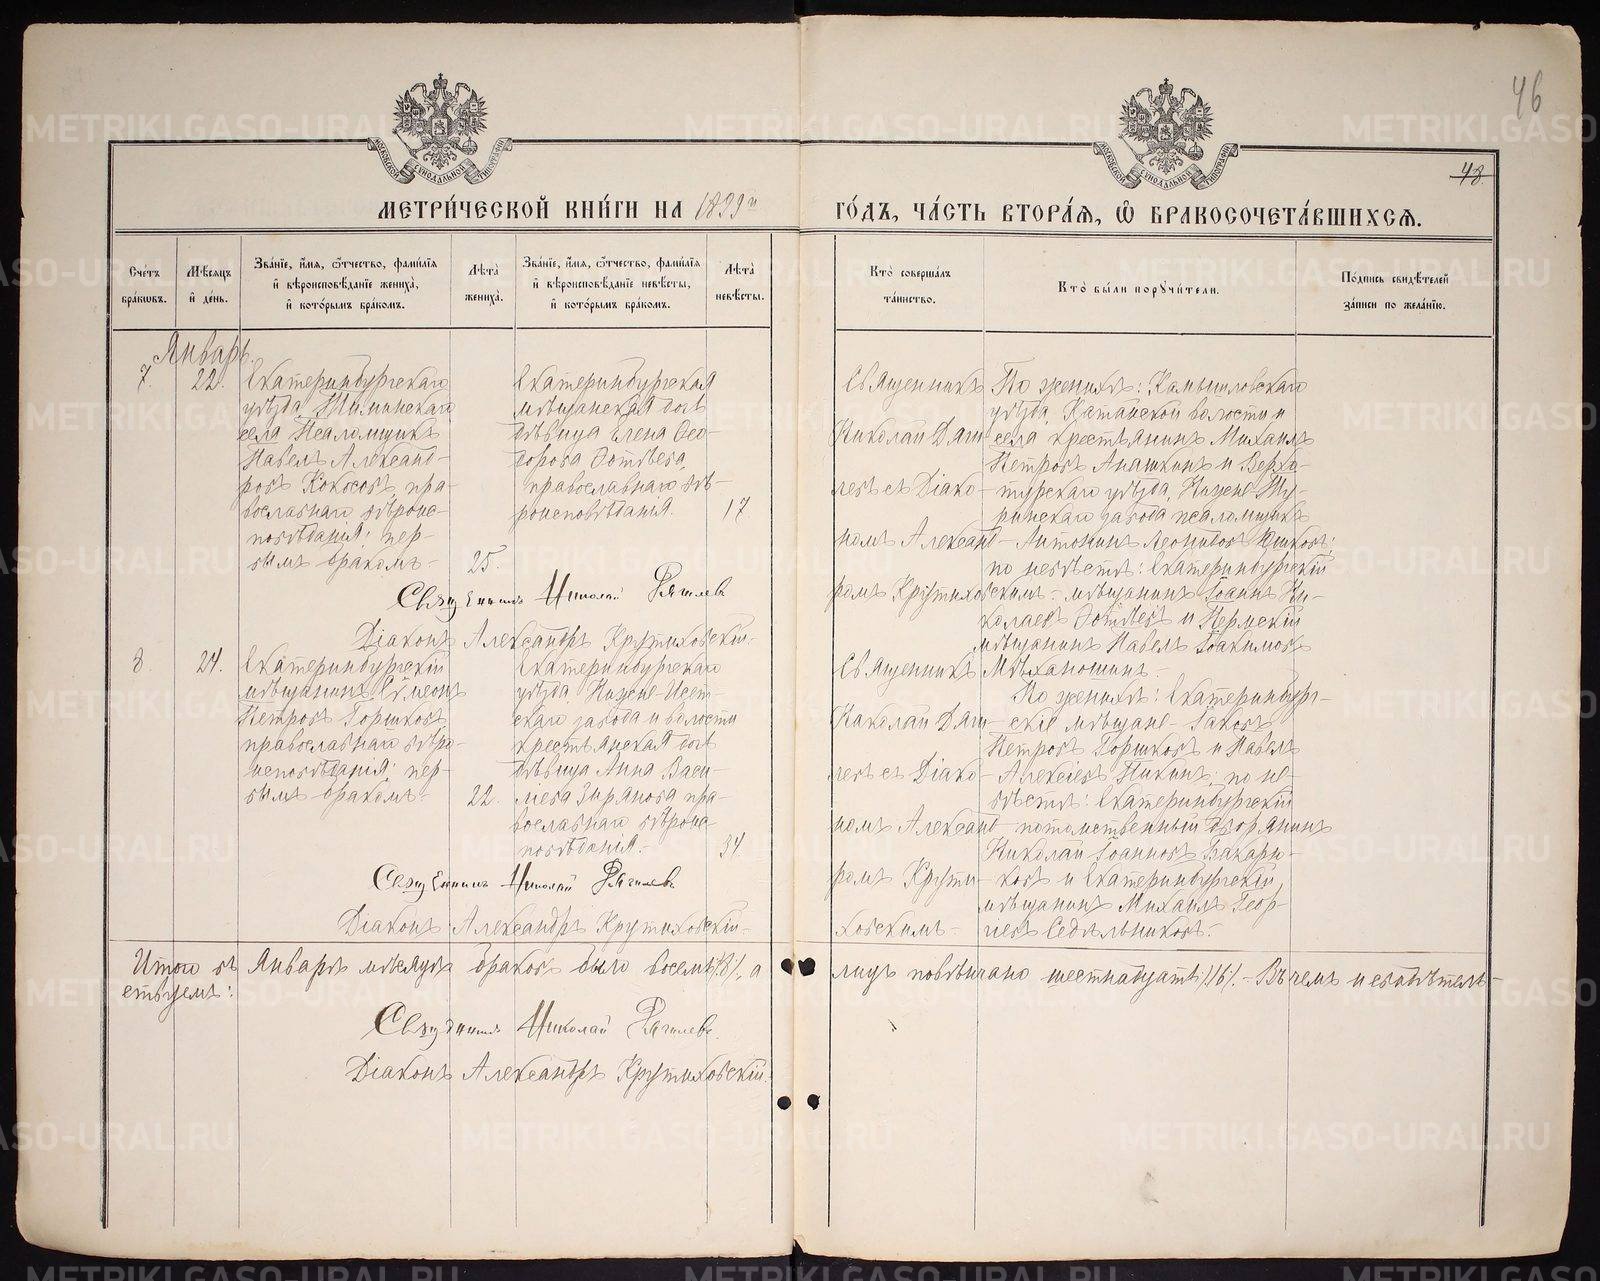 46
48
МОСКОВСКОЙ СѴНОДАЛЬНОЙ ТИПОГРАФІИ
МОСКОВСКОЙ СѴНОДАЛЬНОЙ ТИПОГРАФІИ
МЕТРИ́ЧЕСКОЙ КНИ́ГИ НА 1899й ГО́ДЪ, ЧА́СТЬ ВТОРА́Я, Ѽ БРАКОСОЧЕТА́ВШИХСЯ.
Сче́тъ бра́кωвъ.
Мѣ́сяцъ и҆ де́нь.
Зва́нїе, и҆́мя, ѻ҆́тчество, фами́лїя и҆ вѣроисповѣ́данїе жениха̀, и҆ кото́рымъ бра́комъ.
Лѣ́та жениха̀.
Зва́нїе, и҆́мя, ѻ҆́тчество, фами́лїя и҆ вѣроисповѣ́данїе невѣ́сты, и҆ кото́рымъ бра́комъ.
Лѣ́та невѣ́сты.
Кто̀ соверша́лъ та́инство.
Кто̀ бы́ли порꙋчи́тели.
По́дпись свидѣ́телей за́писи по жела́нїю.
Январь.
7.
22.
Екатеринбургскаго
уѣзда,
села Псаломщикъ
Павелъ Александ-
ровъ Кокосовъ, пра-
вославнаго вѣроис-
повѣданія; пер-
вымъ бракомъ-
25.
Екатеринбургская
мѣщанская дочь
дѣвица Елена Ѳео-
дорова
православнаго вѣ-
роисповѣданія.
17
Священникъ
Николай
съ Діако-
номъ Александ-
ромъ Крутиховскимъ-
По женихѣ: Камышловскаго
уѣзда, Катайской волости и
села крестьянинъ Михаилъ
Петровъ Анашкинъ и Верхо-
турскаго уѣзда, Нижне-Ту-
ринскаго завода псаломщикъ
Антонинъ Леонидовъ
по невѣстѣ: Екатеринбургскій
мѣщанинъ Іоаннъ Ни-
колаевъ и Пермскій
мѣщанинъ Павелъ Іоакимовъ
Мѣханошинъ-
Священникъ Николай
Діаконъ Александръ Крутиховскій.
8.
24.
Екатеринбургскій
мѣщанинъ Сѵмеонъ
Петровъ Горшковъ
православнаго вѣро-
исповѣданія; пер-
вымъ бракомъ-
22.
Екатеринбургскаго
уѣзда Нижне-Исет-
скаго завода и волости
крестьянская дочь
дѣвица Анна Васи-
лiева Зырянова пра-
вославнаго вѣроис-
повѣданія.-
34.
Священникъ
Николай
съ Діако-
номъ Александ-
ромъ Крути-
ховскимъ-
По женихѣ: Екатеринбург-
скіе мѣщане Іаковъ
Петровъ Горшковъ и Павелъ
Алексіевъ Пикинъ; по не-
вѣстѣ: Екатеринбургскій
потомственный дворянинъ
Николай Іоанновъ Захари-
ковъ и Екатеринбургскій
мѣщанинъ Михаилъ Геор-
гіевъ Седельниковъ.-
Священникъ Николай
Діаконъ Александръ Крутиховскій-
Итого въ Январѣ мѣсяцѣ браковъ было восемь /8/, а лицъ повѣнчано шестнадцать /16/.- Въ чемъ и свидѣтель-
ствуемъ:
Священникъ Николай
Діаконъ Александръ Крутиховскій.
METRIKI.GASO-URAL.RU